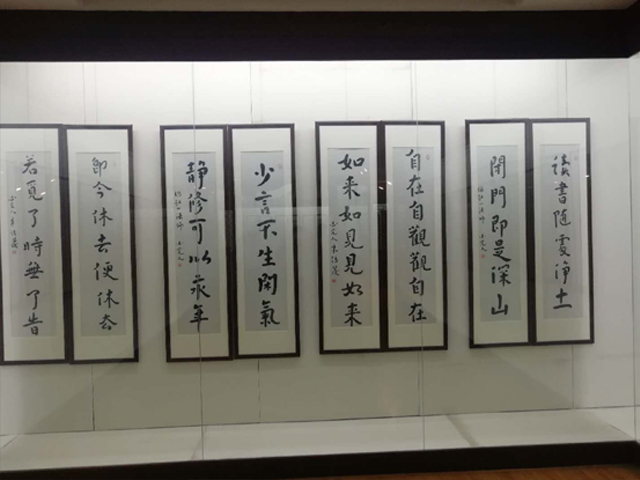 讀書隨處淨土
閉門即是深山
自在自觀觀自在
如來如見見如來
少言不生閑氣
靜修可以永年
即今休去便休去
若覓了時無了時